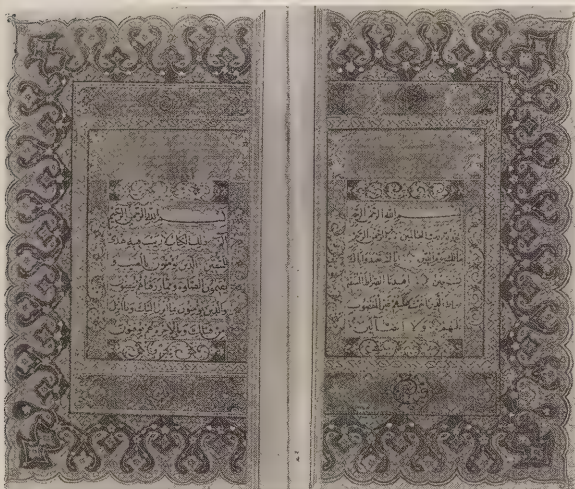 بسم الله الرحمن الرحيم
رب العالمين الرحمن الرحيم
مالك يوم الدين اياك نعبد واياك
نستعين اهدنا الصراط المستقيم
صراط الذين انعمت عليهم غير المغضوب
عليهم ولا الضالين
بسم الله الرحمن الرحيم
الم ذلك الكتاب لا ريب فيه هدى
للمتقين الذين يؤمنون بالغيب و
يقيمون الصلوة ومما رزقناهم ينفقون
والذين يؤمنون بما انزل اليك وما انزل
من قبلك وبالاخرة هم يوقنون